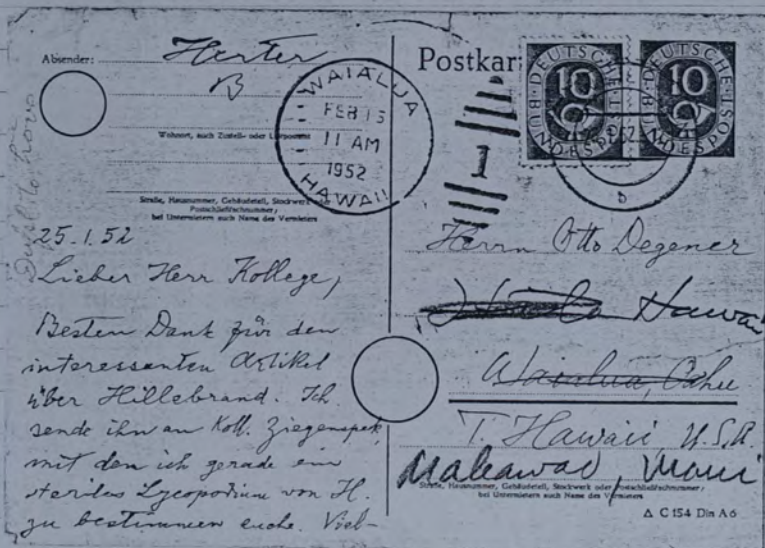 Absender: Herter
B
Wohnort, auch Zustell- oder Leitpostamt
Straße, Hausnummer, Gebäudeteil, Stockwerk oder
Postschließfachnummer;
bei Untermietern auch Name des Vermieters
WAIALUA
FEB 15
11 AM
1952
HAWAII
25.1.52
Lieber Herr Kollege,
Besten Dank für den
interessanten Artikel
über Hillebrand. Ich
sende ihn an Koll. Ziegenspek,
mit dem ich gerade ein
steriles Lycopodium von H.
zu bestimmen suche. Viel-
Postkar
DEUTSCHE BUNDESPOST
10
DEUTSCHE BUNDESPOST
10
1
b
Herrn Otto Degener
Hawaii
Waialua, Oahu
T. Hawaii, U.S.A.
Makawao, Maui
Straße, Hausnummer, Gebäudeteil, Stockwerk oder Postschließfachnummer;
bei Untermietern auch Name des Vermieters
Δ C 154 Din A 6